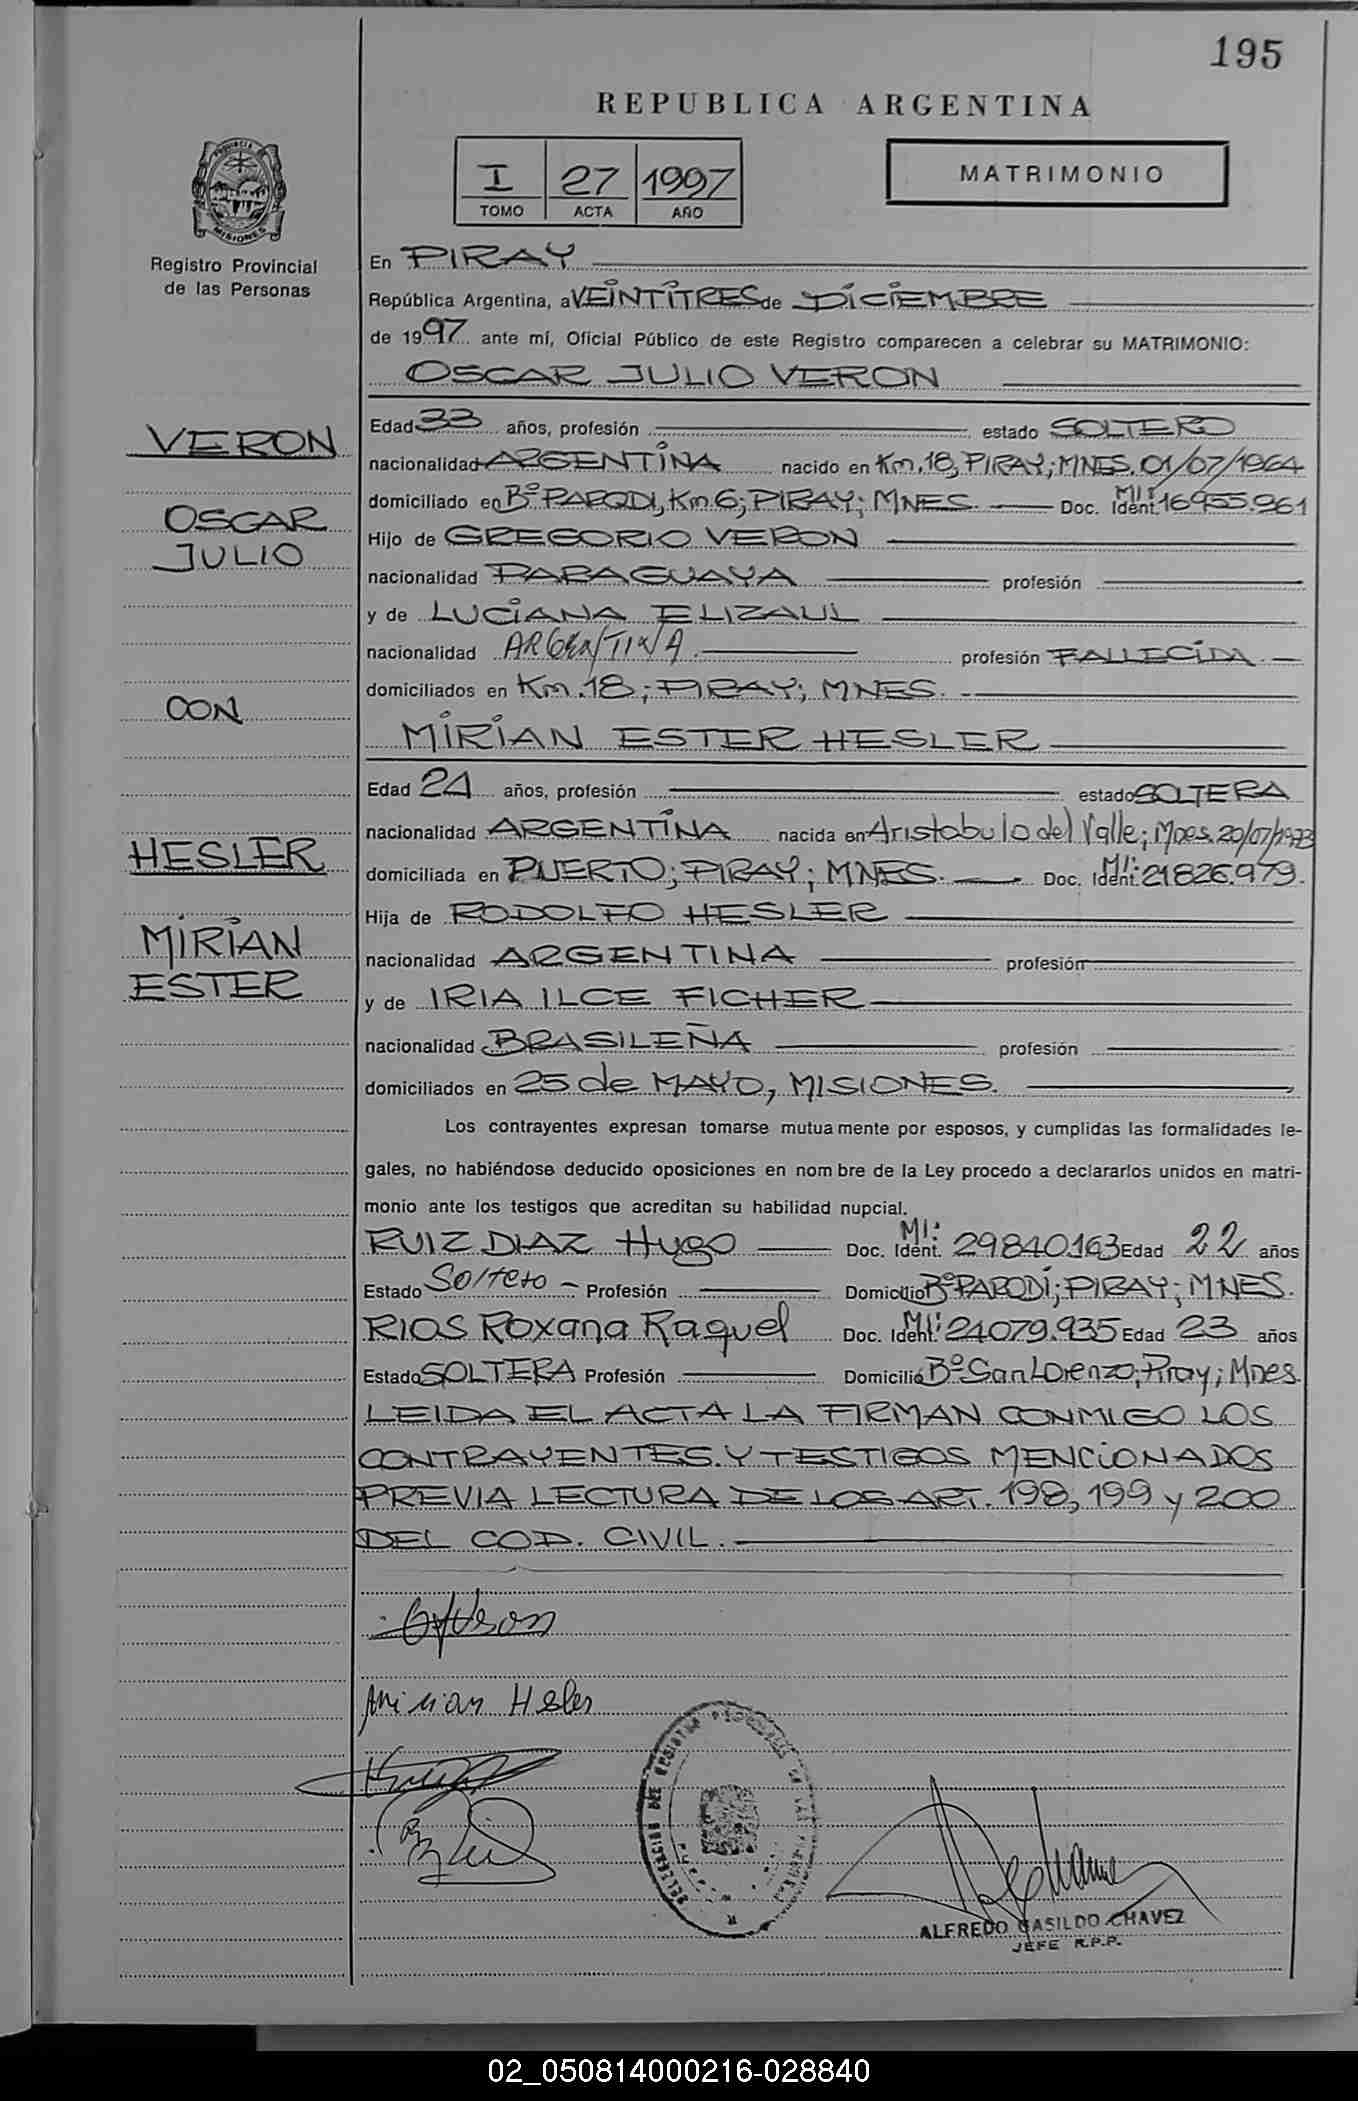 195
REPUBLICA ARGENTINA
I 27 1997
TOMO ACTA AÑO
MATRIMONIO
PROVINCIA DE MISIONES
Registro Provincial
de las Personas
En PIRAY
República Argentina, a VEINTITRES de DICIEMBRE
de 1997 ante mí, Oficial Público de este Registro comparecen a celebrar su MATRIMONIO:
OSCAR JULIO VERON
VERON
OSCAR
JULIO
CON
HESLER
MIRIAN
ESTER
Edad 33 años, profesión estado SOLTERO
nacionalidad ARGENTINA nacido en Km. 18, PIRAY; MNES. 01/07/1964
domiciliado en Bº PARODI, Km 6; PIRAY; MNES. Doc. Ident. M.I: 16.955.961
Hijo de GREGORIO VERON
nacionalidad PARAGUAYA profesión
y de LUCIANA ELIZAUL
nacionalidad ARGENTINA profesión FALLECIDA.
domiciliados en Km. 18; PIRAY; MNES.
MIRIAN ESTER HESLER
Edad 24 años, profesión estado SOLTERA
nacionalidad ARGENTINA nacida en Aristabulo del Valle; Mnes. 20/07/1973
domiciliada en PUERTO; PIRAY; MNES. Doc. Ident. M.I: 21.826.979.
Hija de RODOLFO HESLER
nacionalidad ARGENTINA profesión
y de IRIA ILCE FICHER
nacionalidad BRASILEÑA profesión
domiciliados en 25 de MAYO, MISIONES.
Los contrayentes expresan tomarse mutuamente por esposos, y cumplidas las formalidades le-
gales, no habiéndose deducido oposiciones en nombre de la Ley procedo a declararlos unidos en matri-
monio ante los testigos que acreditan su habilidad nupcial.
RUIZ DIAZ Hugo Doc. Ident. M.I: 29840.163 Edad 22 años
Estado Soltero Profesión Domicilio Bº PARODI; PIRAY; MNES.
RIOS Roxana Raquel Doc. Ident. M.I: 24079.935 Edad 23 años
Estado SOLTERA Profesión Domicilio Bº San Lorenzo, Piray; Mnes.
LEIDA EL ACTA LA FIRMAN CONMIGO LOS
CONTRAYENTES Y TESTIGOS MENCIONADOS
PREVIA LECTURA DE LOS ART. 198, 199 y 200
DEL COD. CIVIL.
Mirian Hesler
ALFREDO GASILDO CHAVEZ
JEFE R.P.P.
02_050814000216-028840